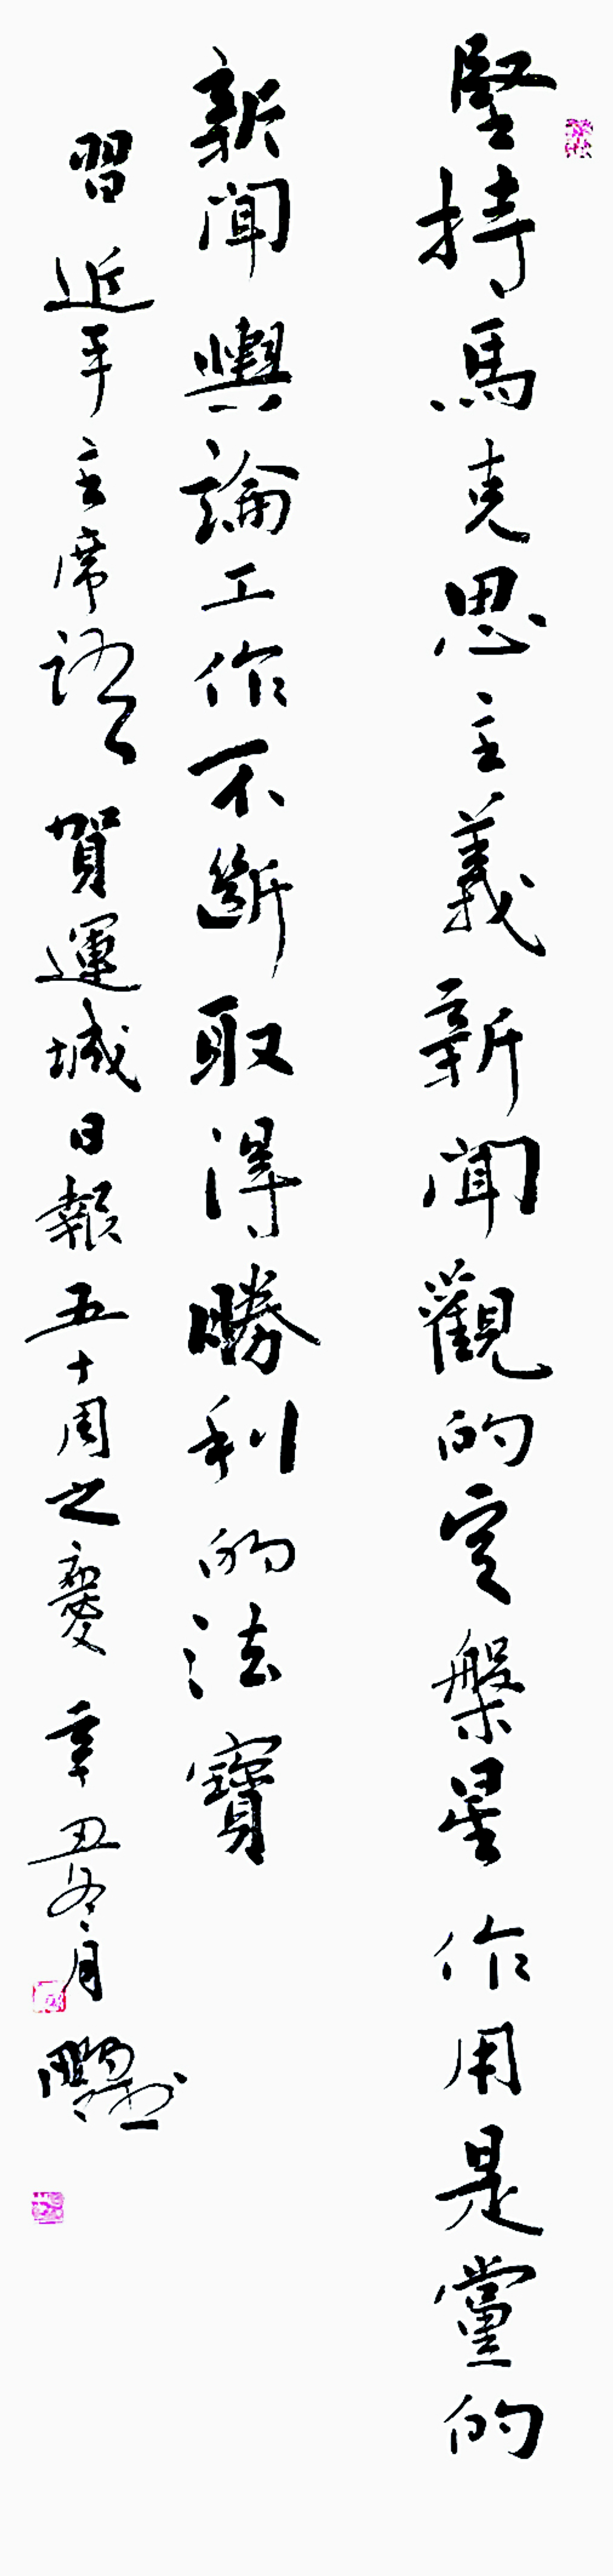 堅持馬克思主義新聞觀的定盤星作用是黨的
新聞輿論工作不斷取得勝利的法寶
習近平主席語 賀運城日報五十周之慶 辛丑冬月